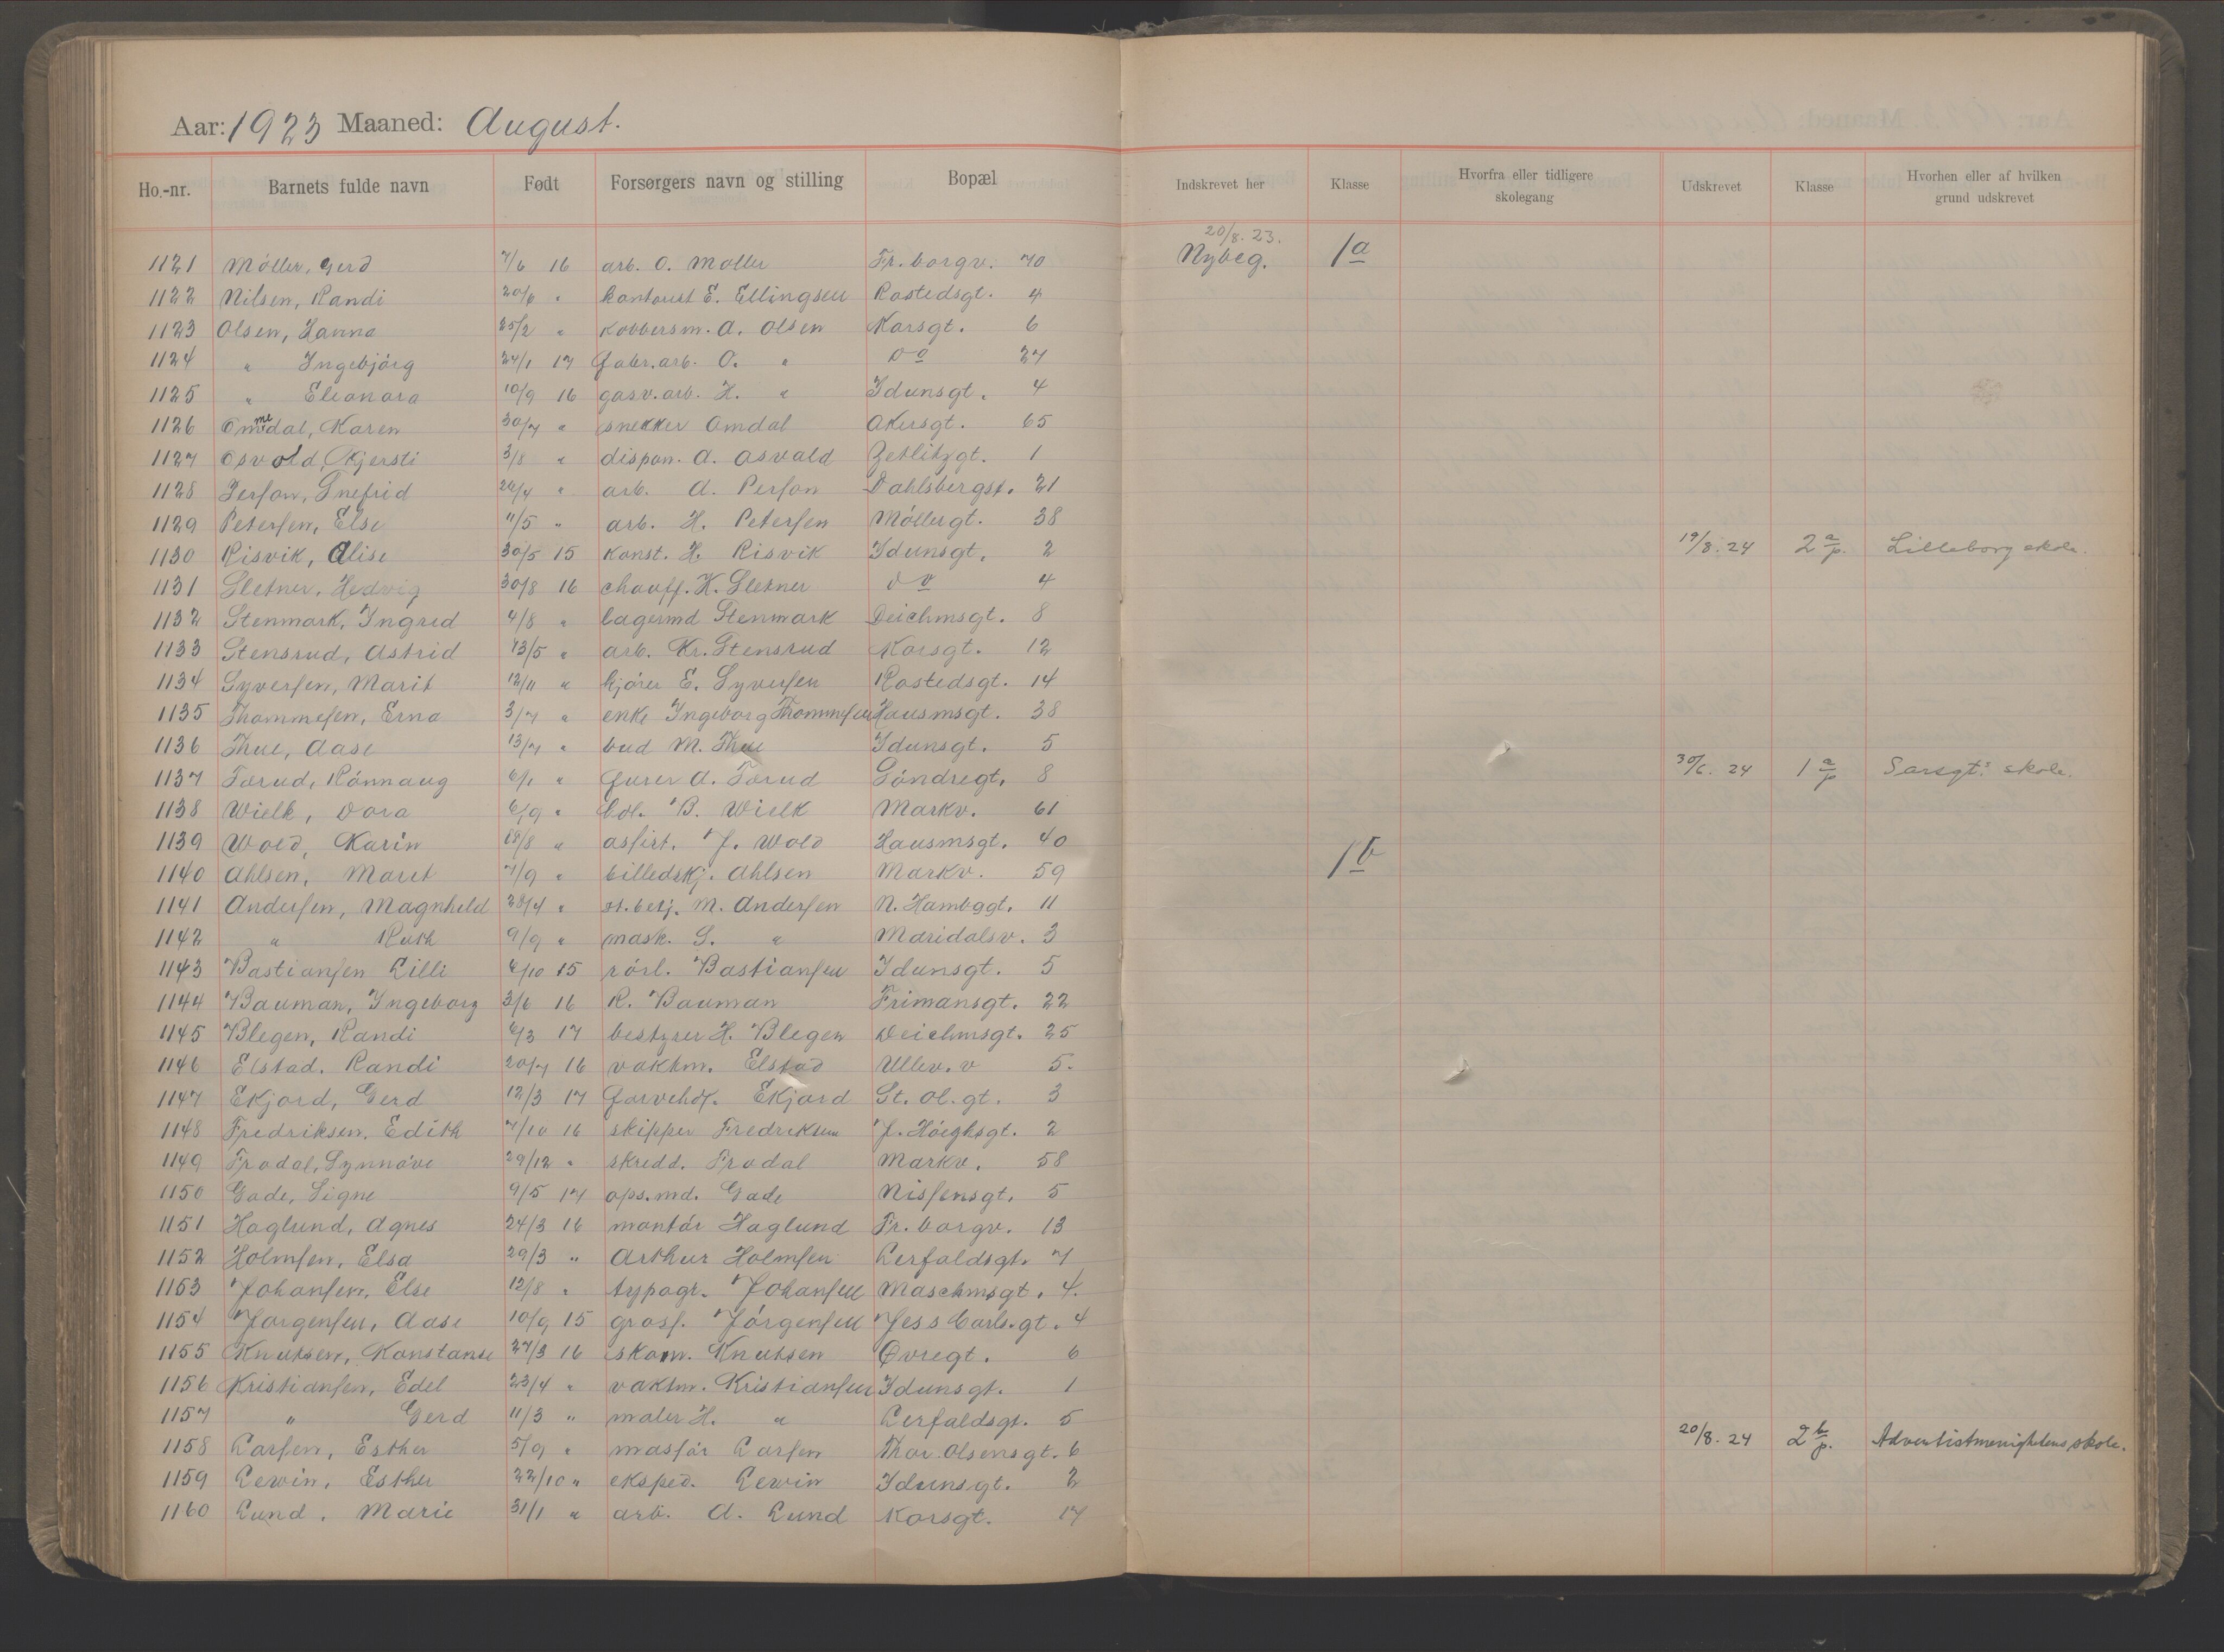 Aar: 1923 Maaned: August.
Ho.-nr. Barnets fulde navn Født Forsørgers navn og stilling Bopæl Indskrevet her Klasse Hvorfra eller tidligere skolegang Udskrevet Klasse Hvorhen eller af hvilken grund udskrevet
20/8. 23.
1121 Möller, Gerd 7/6 16 arb. O. Møller Fr. borgv. 70 Nybeg. 1a
1122 Nilsen, Randi 20/6 " kontorist E. Ellingsen Rostedsgt. 4
1123 Olsen, Hanna 25/2 " Kobbersm. A. Olsen Korsgt. 6
1124 " Ingebjörg 24/1 17 fabr.arb. O. " do 27
1125 " Eleonora 10/9 16 gasv.arb. H. " Idunsgt. 4
1126 Ommedal, Karen 30/7 " snekker Omdal Akersgt. 65
1127 Osvold, Kjersti 3/8 " dispon. A. Osvald Zetlitzgt. 1
1128 Person, Snefrid 24/4 " arb. A. Person Dahlsbergst. 21
1129 Petersen, Else 11/5 " arb. H. Petersen Möllergt. 38
1130 Risvik, Alise 30/5 15 Konst. H. Risvik Idunsgt. 2 19/8. 24 2 a/p. Lilleborg skole.
1131 Sletner, Hedvig 30/8 16 chauff. K. Sletner do 4
1132 Stenmark, Ingrid 4/8 " lagermd Stenmark Deichmsgt. 8
1133 Stensrud, Astrid 13/5 " arb. Kr. Stensrud Korsgt. 12
1134 Syversen, Marit 12/11 " kjörer E. Syversen Rostedsgt. 14
1135 Thommesen, Erna 3/7 " enke Ingeborg Thommesen Hausmsgt. 38
1136 Thue, Aase 13/7 " bud M. Thue Idunsgt. 5
1137 Torud, Rönnaug 6/1 " furer A. Torud Söndregt. 8 30/6. 24 1 a/p Sarsgt.s skole.
1138 Wielk, Dora 6/9 " hdl. B. Wielk Markv. 61
1139 Wold, Karin 28/8 " assist. J. Wold Hausmsgt. 40
1140 Ahlsen, Maret 7/9 " billedskj. Ahlsen Markv. 59 1b
1141 Andersen, Magnhild 28/4 " st.betj. M. Andersen N. Hambggt. 11
1142 " Ruth 9/9 " mask. S. " Maridalsv. 3
1143 Bastiansen Lilli 6/10 15 rörl. Bastiansen Idunsgt. 5
1144 Bauman, Ingeborg 3/6 16 R. Bauman Frimansgt. 22
1145 Blegen, Randi 6/3 17 bestyrer H. Blegen Deichmsgt. 25
1146 Elstad. Randi 20/7 16 vaktm. Elstad Ullev. v 5.
1147 Ekjord, Gerd 12/3 17 farvehdl. Ekjord St. Ol. gt. 3
1148 Fredriksen. Edith 7/10 16 skipper Fredriksen J. Höeghsgt. 2
1149 Frodal, Synnöve 29/12 " skredd. Frodal Markv. 58
1150 Gade, Signe 9/5 17 ops.md. Gade Nissensgt. 5
1151 Haglund, Agnes 24/3 16 montör Haglund Fr. borgv. 13
1152 Holmsen, Elsa 29/3 " Arthur Holmsen Lerfaldsgt. 7
1153 Johansen, Else 12/8 " typogr. Johansen Maschmsgt. 4.
1154 Jörgensen, Aase 10/9 15 gross. Jörgensen Jess Carls.gt. 4
1155 Knutsen, Konstanse 27/3 16 skom. Knutsen Övregt. 6
1156 Kristiansen, Edel 23/4 " vaktm. Kristiansen Idunsgt. 1
1157 " Gerd 11/3 " maler H. " Lerfaldsgt. 5
1158 Larsen, Esther 5/9 " massör Larsen Thor Olsensgt. 6 20/8. 24 2 b/p. Adventistmenighetens skole.
1159 Lewin, Esther 22/10 " eksped. Lewin Idunsgt. 2
1160 Lund, Marie 31/1 " arb. A. Lund Korsgt. 17